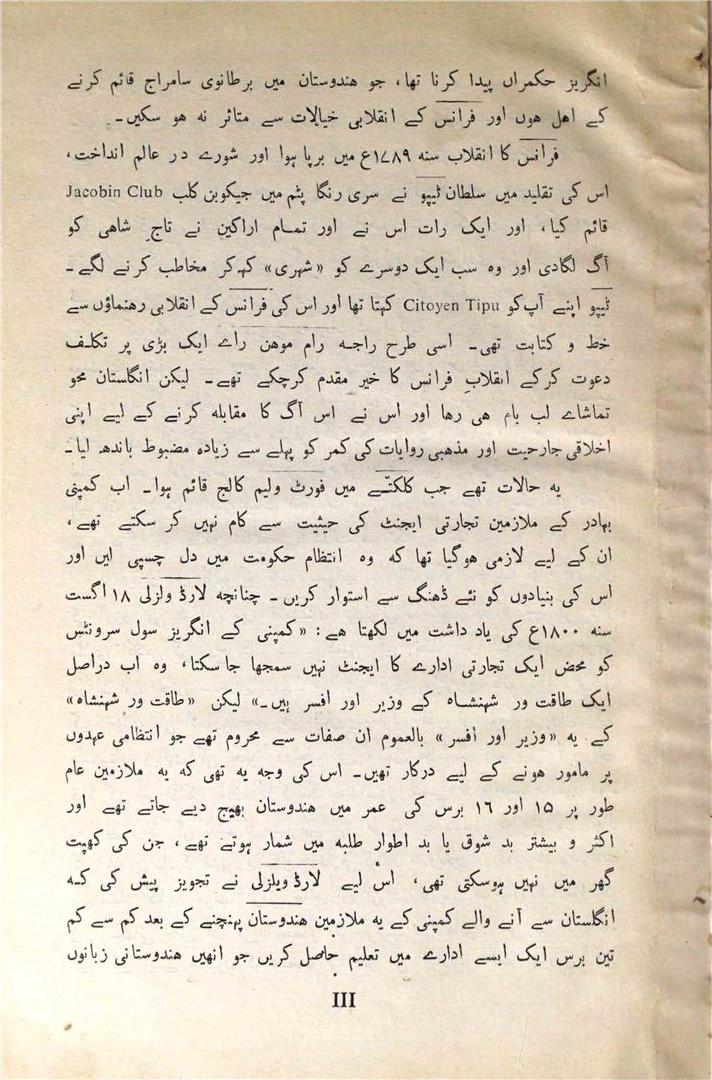 انگریز حکمراں پیدا کرنا تھا، جو هندوستان میں برطانوی سامراج قائم کرنے
کے اهل هوں اور فرانس کے انقلابی خیالات سے متاثر نه هو سکیں۔
فرانس کا انقلاب سنه ۱۷۸۹ع میں برپا ہوا اور شورے در عالم انداخت،
اس کی تقلید میں سلطان ٹیپو نے سری رنگا پٹم میں جیکوبن کلب Jacobin Club
قائم کیا، اور ایک رات اس نے اور تمام اراکین نے تاج شاهی کو
آگ لگادی اور وه سب ایک دوسرے کو «شهری» کہہ کر مخاطب کرنے لگے۔
ٹیپو اپنے آپ کو Citoyen Tipu کہتا تھا اور اس کی فرانس کے انقلابی رهنماؤں سے
خط و کتابت تھی۔ اسی طرح راجه رام موهن راے ایک بڑی پر تکلف
دعوت کرکے انقلابِ فرانس کا خیر مقدم کرچکے تھے۔ لیکن انگلستان محو
تماشاے لب بام هی رها اور اس نے اس آگ کا مقابله کرنے کے لیے اپنی
اخلاقی جارحیت اور مذهبی روایات کی کمر کو پہلے سے زیاده مضبوط باندھ لیا۔
یه حالات تھے جب کلکتّے میں فورٹ ولیم کالج قائم ہوا۔ اب کمپنی
بهادر کے ملازمین تجارتی ایجنٹ کی حیثیت سے کام نہیں کر سکتے تھے،
ان کے لیے لازمی هوگیا تھا که وه انتظام حکومت میں دل چسپی لیں اور
اس کی بنیادوں کو نئے ڈھنگ سے استوار کریں۔ چنانچه لارڈ ولزلی ۱۸ اگست
سنه ۱۸۰۰ع کی یاد داشت میں لکھتا هے: «کمپنی کے انگریز سول سرونٹس
کو محض ایک تجارتی ادارے کا ایجنٹ نہیں سمجھا جاسکتا، وه اب دراصل
ایک طاقت ور شہنشاہ کے وزیر اور افسر ہیں۔» لیکن «طاقت ور شہنشاہ»
کے یه «وزیر اور افسر» بالعموم ان صفات سے محروم تھے جو انتظامی عہدوں
پر مامور هونے کے لیے درکار تھیں۔ اس کی وجه یه تھی که یه ملازمین عام
طور پر ۱۵ اور ۱۶ برس کی عمر میں هندوستان بھیج دیے جاتے تھے اور
اکثر و بیشتر بد شوق یا بد اطوار طلبه میں شمار ہوتے تھے، جن کی کھپت
گھر میں نہیں ہوسکتی تھی، اس لیے لارڈ ویلزلی نے تجویز پیش کی که
انگلستان سے آنے والے کمپنی کے یه ملازمین هندوستان پہنچنے کے بعد کم سے کم
تین برس ایک ایسے ادارے میں تعلیم حاصل کریں جو انھیں هندوستانی زبانوں
III